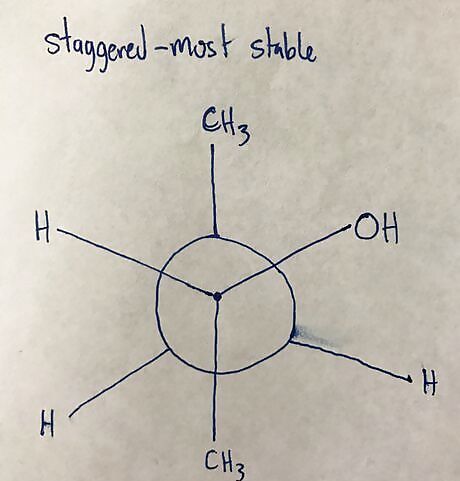 staggered-most stable
CH3
H
OH
H
H
CH3